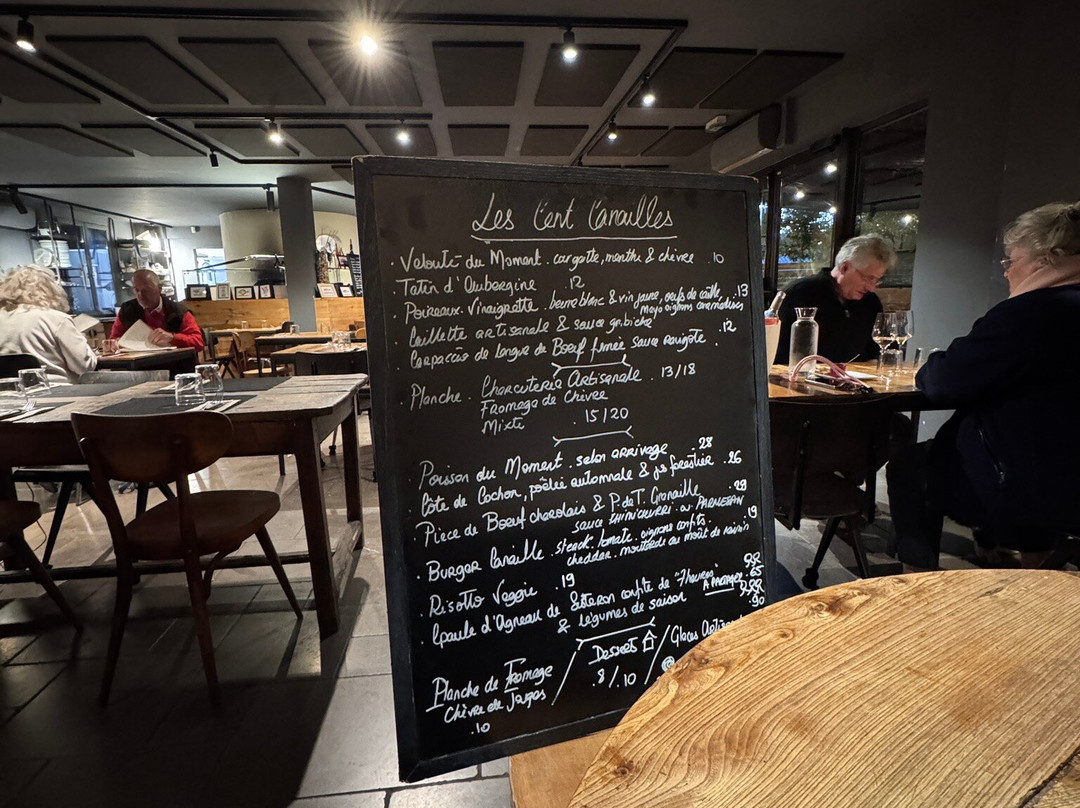 Les Cent Canailles
. Velouté du Moment. carotte, menthe & chèvre .10
. Tatin d'Aubergine 12
. Poireaux. Vinaigrette. beurre blanc & vin jaune, œufs de caille, .13
mayo oignons
. Caillette artisanale & sauce gribiche
. Carpaccio de langue de Bœuf fumée sauce ravigote . 12
. Planche . Charcuterie Artisanale . 13/18
Fromage de Chèvre
Mixte . 15/20
. Poisson du Moment. selon arrivage .28
. Côte de Cochon, poêlée automnale & jus forestier .26
. Pièce de Bœuf charolais & P.de T. Grenaille .29
sauce CHIMICHURRI ou PARMESAN
. BURGER Canaille . steack. tomate. oignons confits. .19
cheddar. moutarde au moût de raisin
. Risotto Veggie 19
. Epaule d'Agneau de confite de "7 heures" 65
& légumes de saison A PARTAGER .90
Planche de Fromage
Chèvre de
.10
Desserts
.8/.10
Glaces